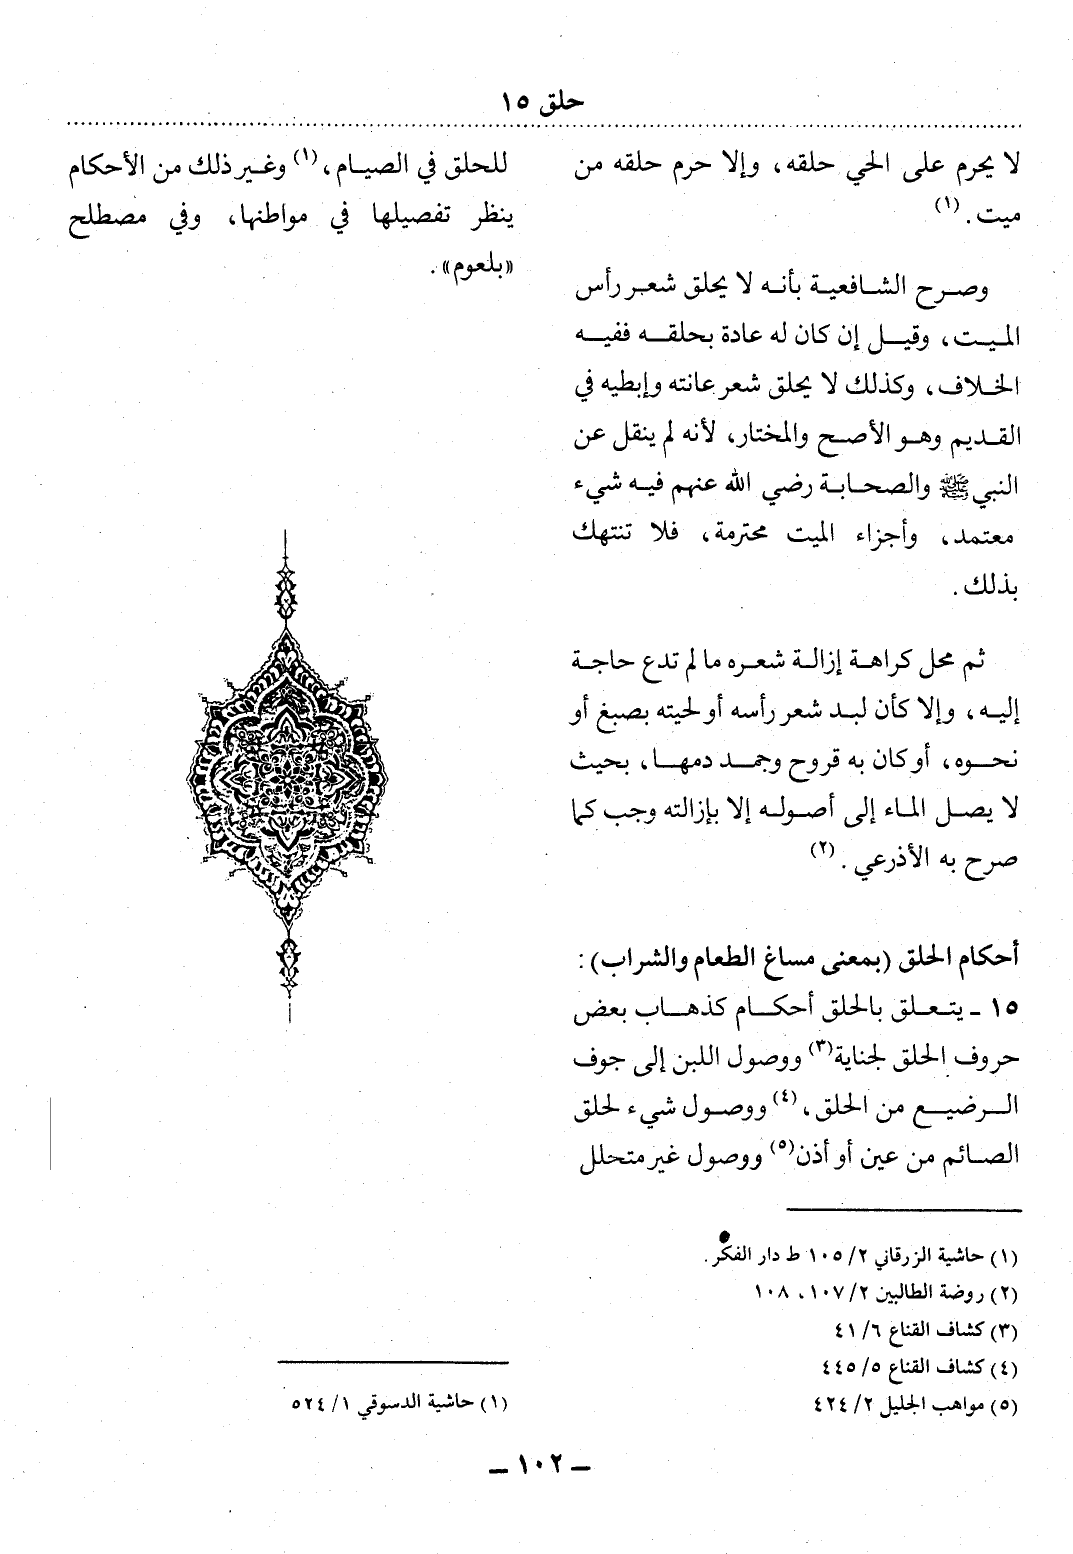 حلق ١٥
لا يحرم على الحي حلقه، وإلا حرم حلقه من
ميت. (١)
وصرح الشافعية بأنه لا يحلق شعر رأس
الميت، وقيل إن كان له عادة بحلقه ففيه
الخلاف، وكذلك لا يحلق شعر عانته وإبطيه في
القديم وهو الأصح والمختار، لأنه لم ينقل عن
النبي ﷺ والصحابة رضي الله عنهم فيه شيء
معتمد، وأجزاء الميت محترمة، فلا تنتهك
بذلك.
ثم محل كراهة إزالة شعره ما لم تدع حاجة
إليه، وإلا كأن لبد شعر رأسه أو لحيته بصبغ أو
نحوه، أو كان به قروح وجمد دمها، بحيث
لا يصل الماء إلى أصوله إلا بإزالته وجب كما
صرح به الأذرعي. (٢)
أحكام الحلق (بمعنى مساغ الطعام والشراب):
١٥ ـ يتعلق بالحلق أحكام كذهاب بعض
حروف الحلق لجناية(٣) ووصول اللبن إلى جوف
الرضيع من الحلق، (٤) ووصول شيء لحلق
الصائم من عين أو أذن(٥) ووصول غير متحلل
(١) حاشية الزرقاني ٢/ ١٠٥ ط دار الفكر.
(٢) روضة الطالبين ٢/ ١٠٧، ١٠٨
(٣) كشاف القناع ٦/ ٤١
(٤) كشاف القناع ٥/ ٤٤٥
(٥) مواهب الجليل ٢/ ٤٢٤
للحلق في الصيام، (١) وغير ذلك من الأحكام
ينظر تفصيلها في مواطنها، وفي مصطلح
«بلعوم».
(١) حاشية الدسوقي ١/ ٥٢٤
ـ ١٠٢ ـ